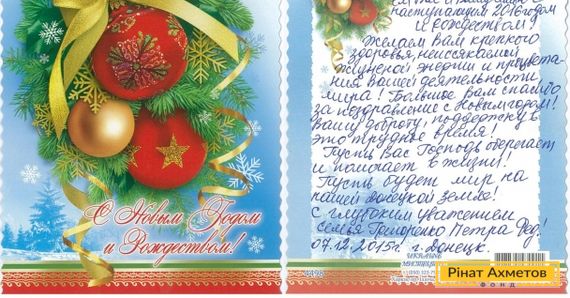 С Новым Годом
и Рождеством!
наступающим 2016 годом
и Рождеством!
Желаем Вам крепкого
здоровья, неиссякаемой
жизненной энергии и процвета-
ния Вашей деятельности,
мира! Большое Вам спасибо
за поздравление с Новым годом!
Вашу доброту, поддержку в
это трудное время!
Пусть Вас Господь оберегает
и помогает в жизни!
Пусть будет мир на
нашей донецкой земле!
С глубоким уважением
семья Петра Фед.!
07.12.2015г. г. Донецк.
4498
Рінат Ахметов
Фонд